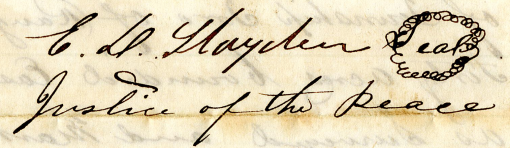 E. D. Hayden Seal
Justice of the Peace